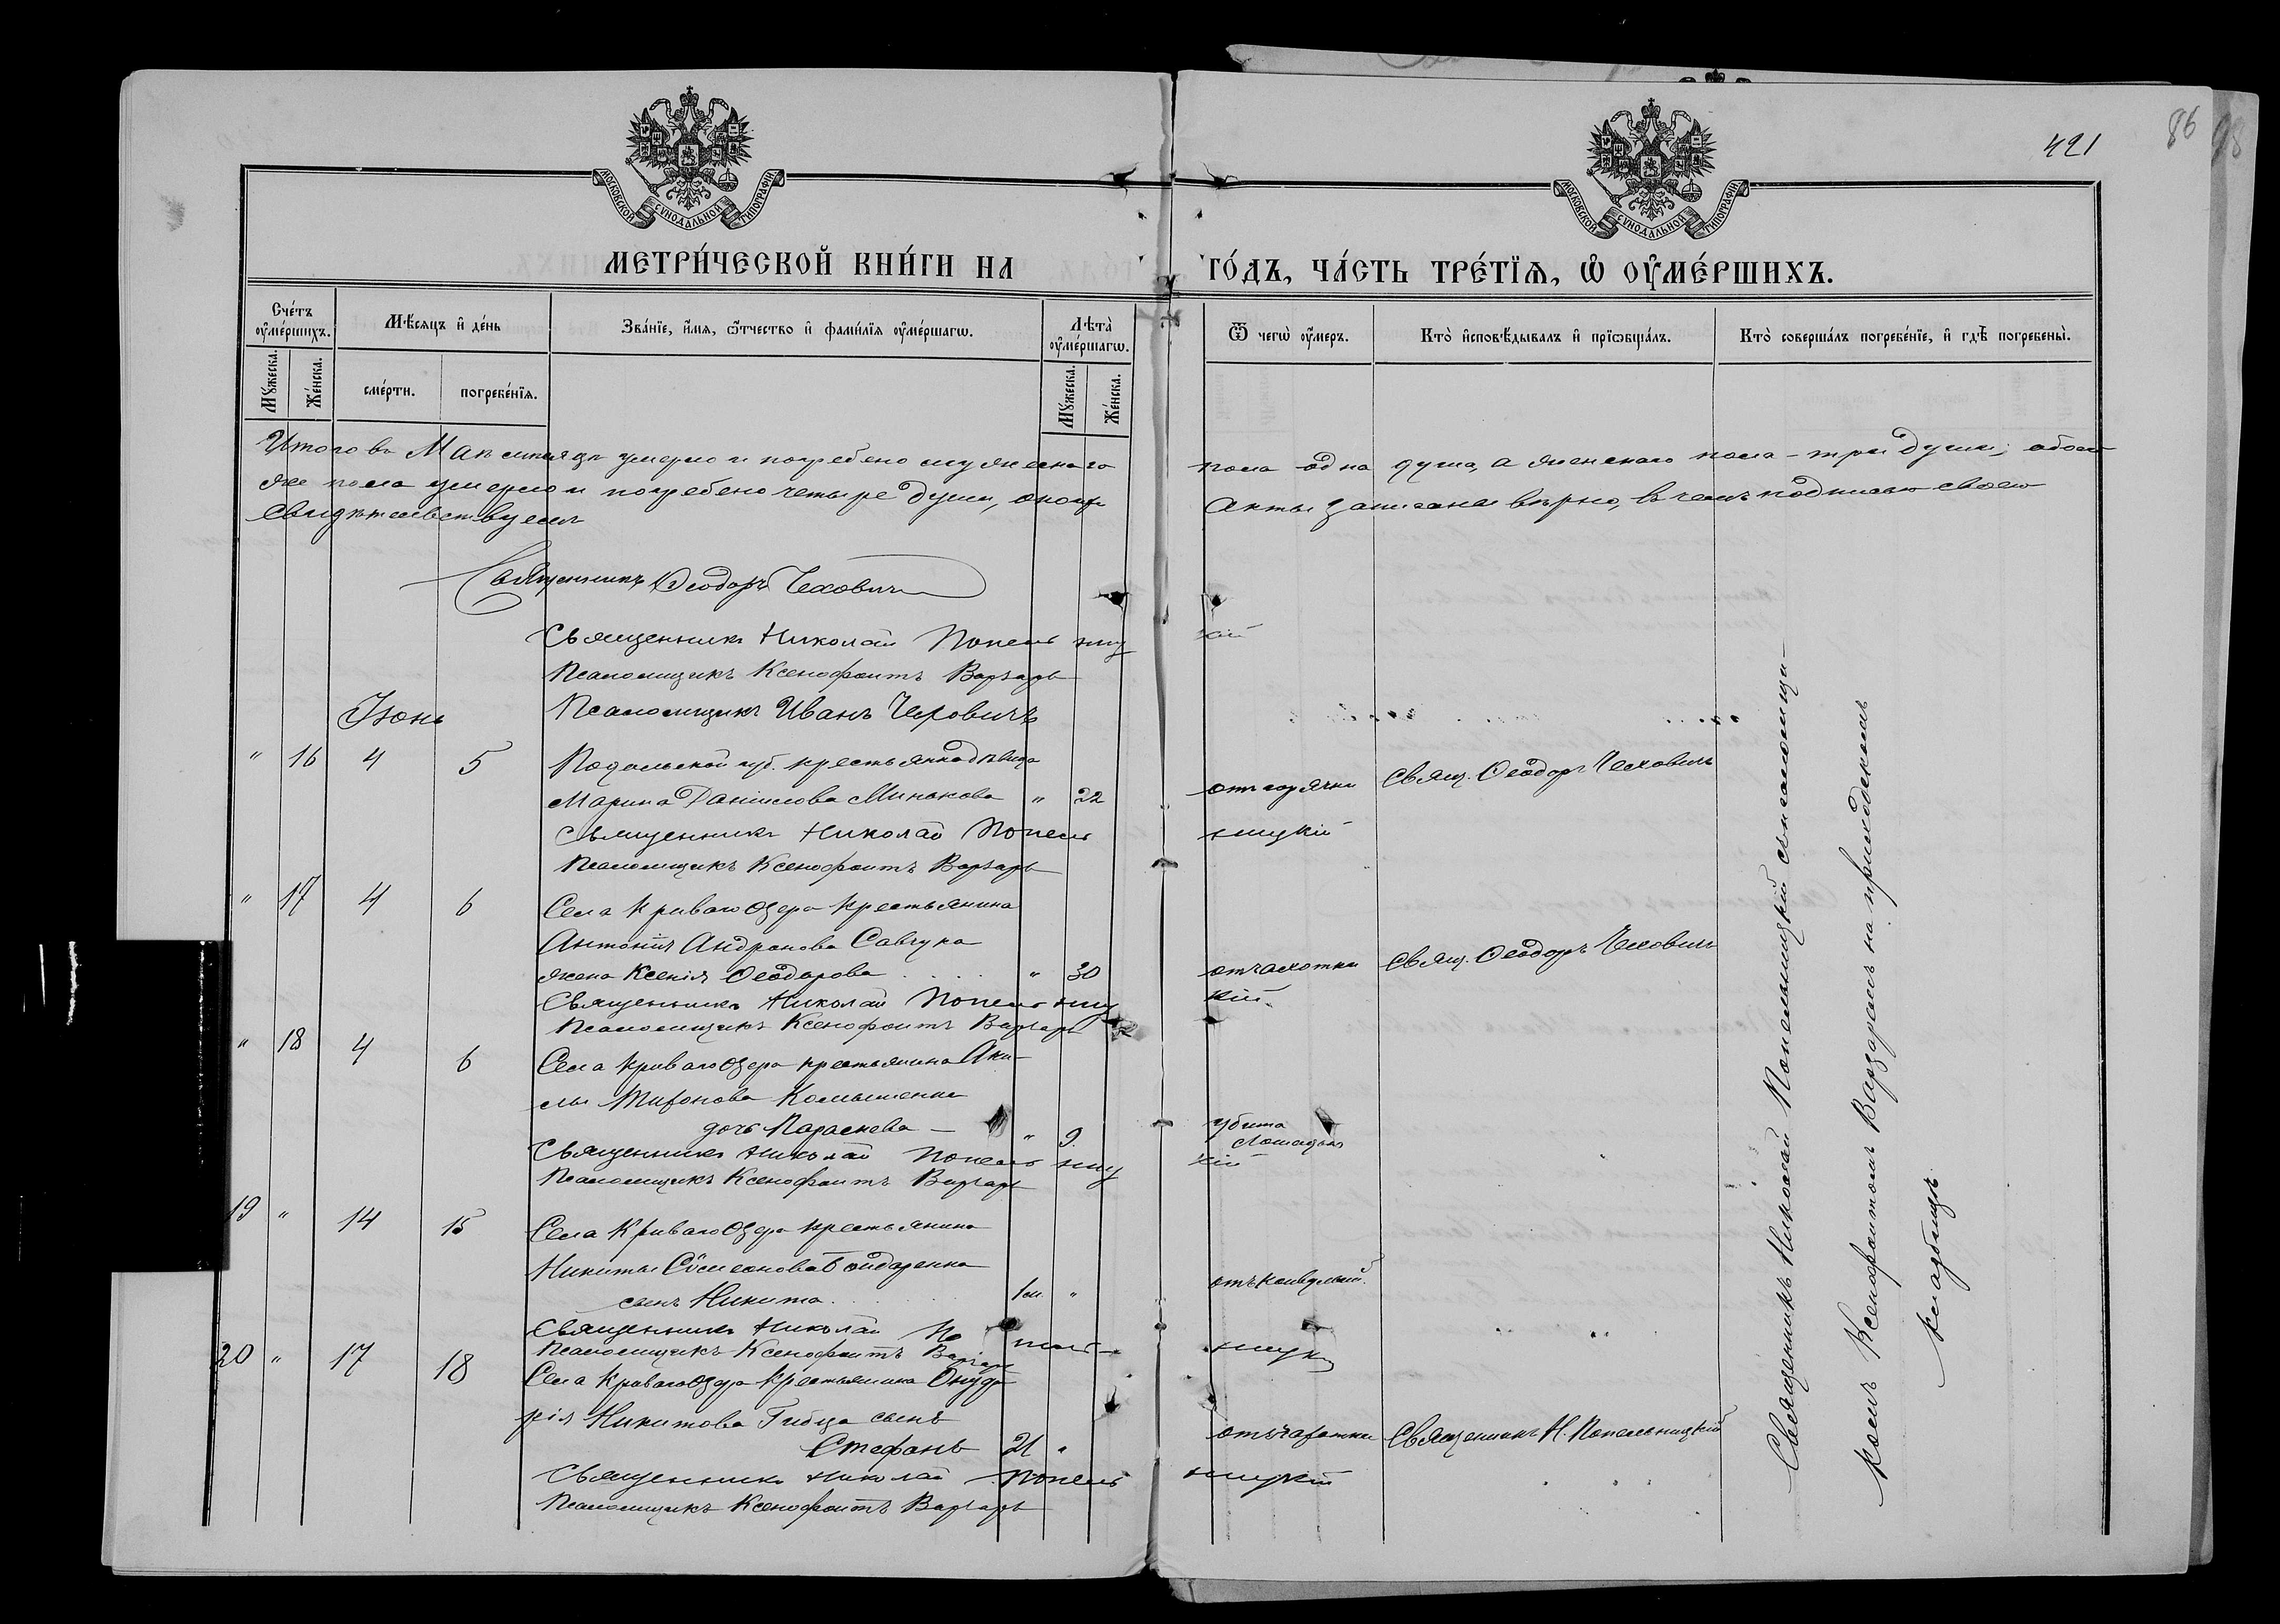 421
86
МОСКОВСКОЙ СѴНОДАЛЬНОЙ ТИПОГРАФІИ
МОСКОВСКОЙ СѴНОДАЛЬНОЙ ТИПОГРАФІИ
МЕТРИ́ЧЕСКОЙ КНИ́ГИ НА ГО́ДЪ, ЧА́СТЬ ТРЕ́ТЇѦ, Ѡ҆ ОУ҆МЕ́РШИХЪ.
Сче́тъ оу҆ме́ршихъ.
Мꙋ́жеска.
Же́нска.
Мѣ́сяцъ и҆ де́нь
сме́рти.
погребе́нїѧ.
Зва́нїе, и҆́мѧ, ѻ҆́тчество и҆ фами́лїѧ оу҆ме́ршагѡ.
Лѣ̀та̀ оу҆ме́ршагѡ.
Мꙋ́жеска.
Же́нска.
Ѿ чегѡ̀ оу҆́меръ.
Кто̀ и҆сповѣ́дывалъ и҆ прїѡбща́лъ.
Кто̀ соверша́лъ погребе́нїе, и҆ гдѣ̀ погребены̀.
Итого въ Маѣ мѣсяцѣ умерло и погребено мужескаго пола одна душа, а женскаго пола - три души; обоего
же пола умерло и погребено четыре души, Акты записаны вѣрно, въ чемъ подписью своею
свидѣтельствуемъ
Священникъ Ѳеодоръ Чеховичъ
Священникъ Николай Попельницкій
Псаломщикъ Ксенофонтъ Варзарь
Іюнь
Псаломщикъ Иванъ Чехович
" 16 4 5 Подольской губ. крестьянка дѣвица
Марина Данилова Минькова " 22 отъ горячки Свящ. Ѳеодоръ Чеховичъ
Священникъ Николай Попельницкій
Псаломщикъ Ксенофонтъ Варзарь
" 17 4 6 Села Криваго Озера крестьянина
Антонія Андронова Савчука
жена Ксенія Ѳеодорова " 30 отъ чахотки Свящ. Ѳеодоръ Чеховичъ
Священникъ Николай Попельницкій
Псаломщикъ Ксенофонтъ Варзарь
" 18 4 6 Села Криваго Озера крестьянина Аки-
лы Тифонова
дочь Параскева — " 9. убита лошадью
Священникъ Николай Попельницкій
Псаломщикъ Ксенофонтъ Варзарь
19 " 14 15 Села Криваго Озера крестьянина
Никиты Сѵмеонова Бондаренка
сынъ Никита 1 м. " отъ конвульсій.
Священникъ Николай Попельницкій
Псаломщикъ Ксенофонтъ Варзарь
20 " 17 18 Села Криваго Озера крестьянина Онуф-
рія Никитова сынъ
Стефанъ 21 " отъ чахотки Священникъ Н. Попельницкій
Священникъ Николай Попельницкій
Псаломщикъ Ксенофонтъ Варзарь
Священникъ Николай Попельницкій съ псаломщи-
комъ Ксенофонтомъ Варзаремъ на приходскомъ
кладбищѣ